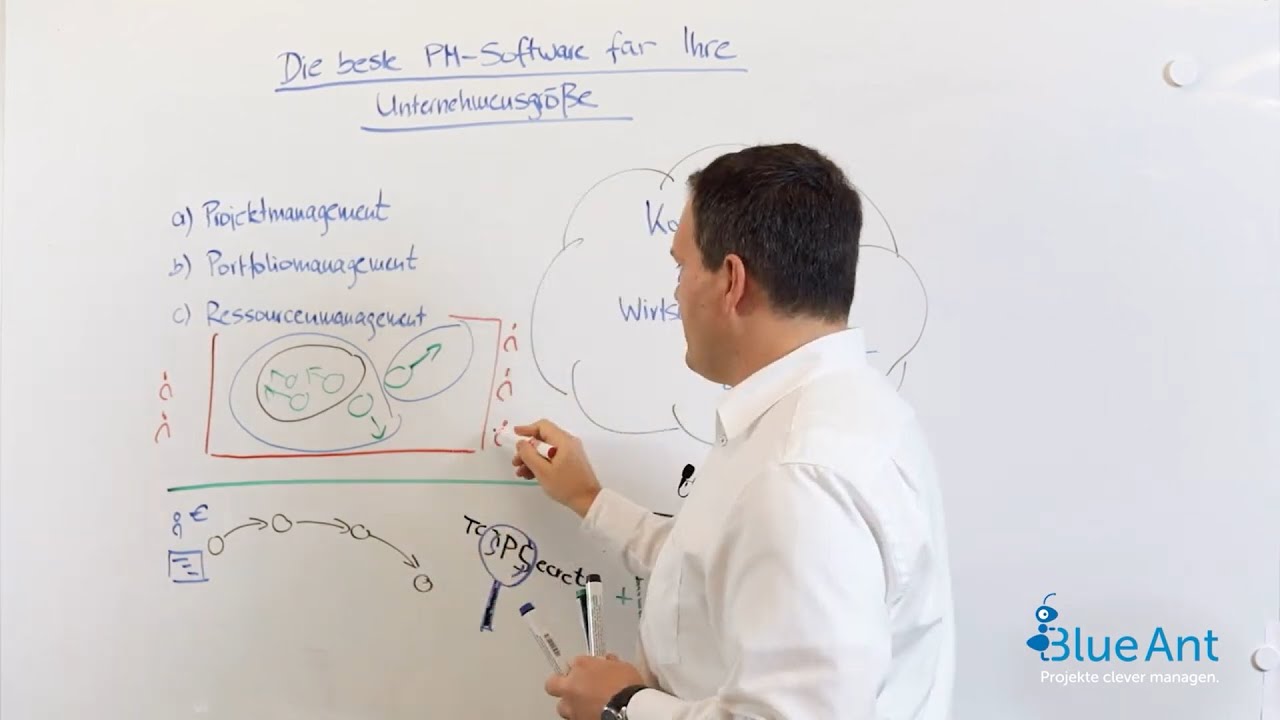 Die beste PM-Software für Ihre
Unternehmensgröße
a) Projektmanagement
b) Portfoliomanagement
c) Ressourcenmanagement
€
Top Secret
+
Blue Ant
Projekte clever managen.